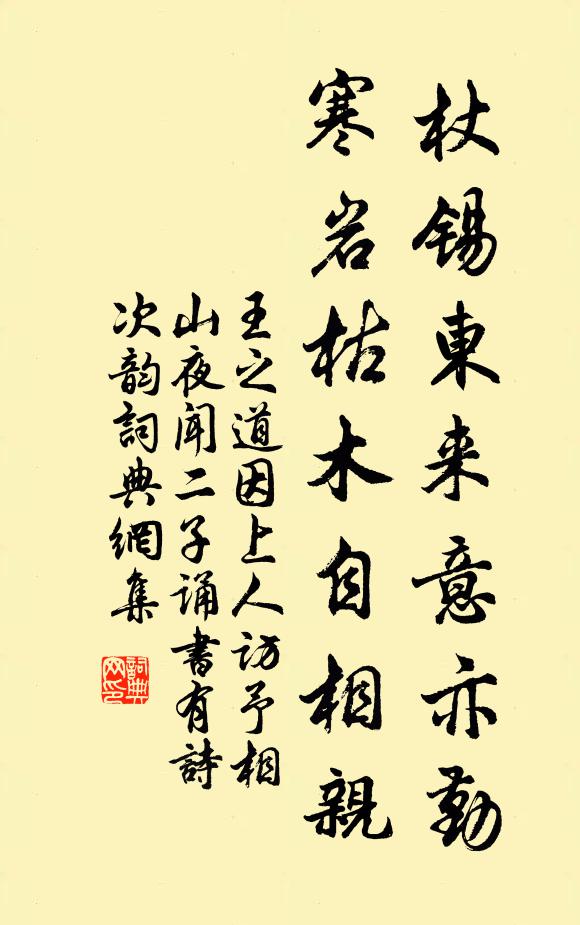 杖錫東来意亦勤
寒岩枯木自相親
王之道因上人访予相
山夜闻二子诵書有詩
次韵詞典網集
詞典网印